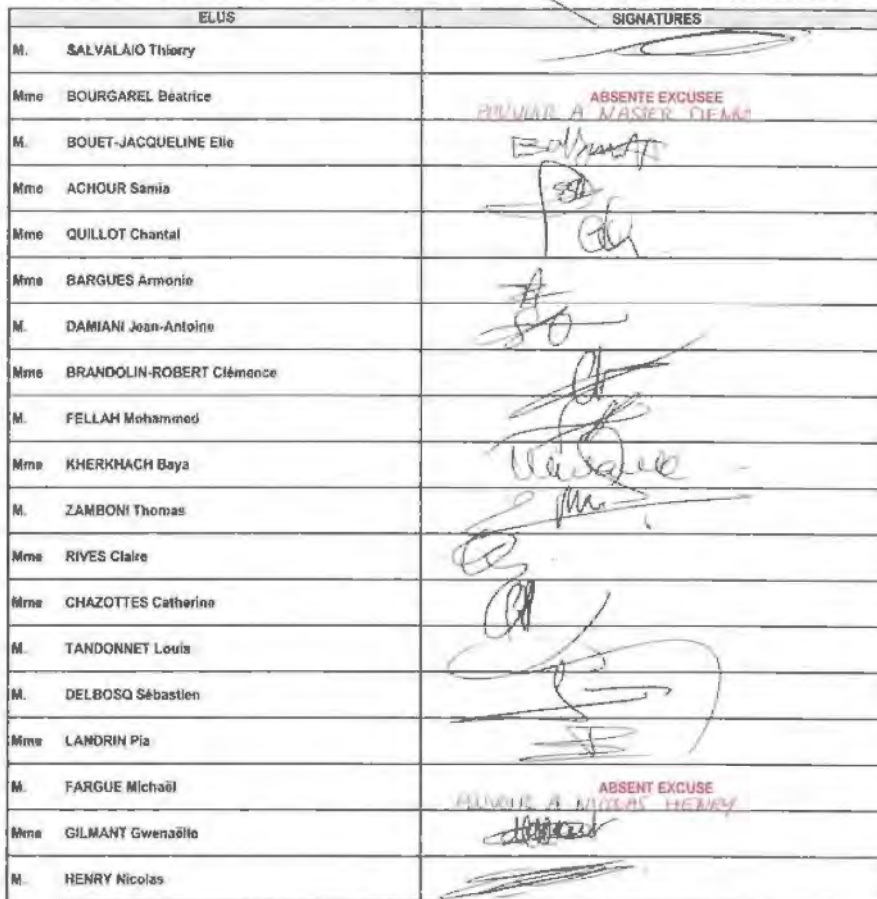 ELUS SIGNATURES
M. SALVALAIO Thierry
Mme BOURGAREL Béatrice
ABSENTE EXCUSEE
POUVOIR A
M. BOUET-JACQUELINE Elie
Mme ACHOUR Samia
Mme QUILLOT Chantal
Mme BARGUES Armonie
M. DAMIANI Jean-Antoine
Mme BRANDOLIN-ROBERT Clémence
M. FELLAH Mohammed
Mme KHERKHACH Baya
M. ZAMBONI Thomas
Mme RIVES Claire
Mme CHAZOTTES Catherine
M. TANDONNET Louis
M. DELBOSQ Sébastien
Mme LANDRIN Pia
M. FARGUE Michaël
ABSENT EXCUSE
POUVOIR A NICOLAS HENRY
Mme GILMANT Gwenaëlle
M. HENRY Nicolas